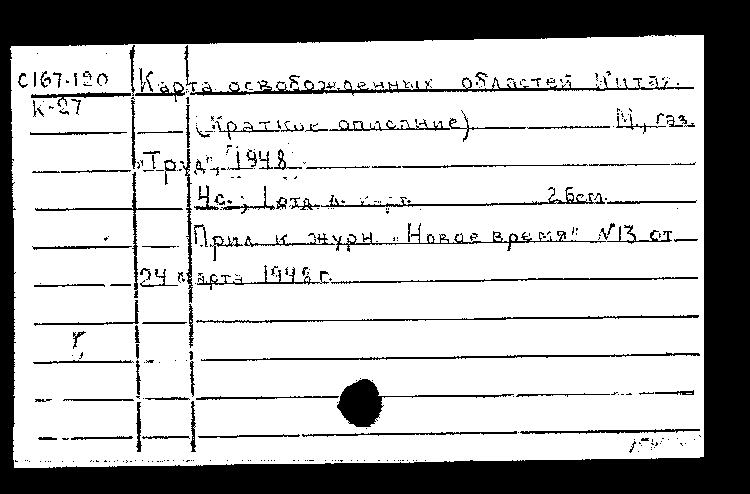 С167-120 Карта освобожденных областей Китая.
К-27
(Краткое описание). М., газ.
„Труд", 1948.
4с.; 1 отд. л. карт. 26см.
Прил. к журн. „Новое время" №13 от
24 марта 1948 г.